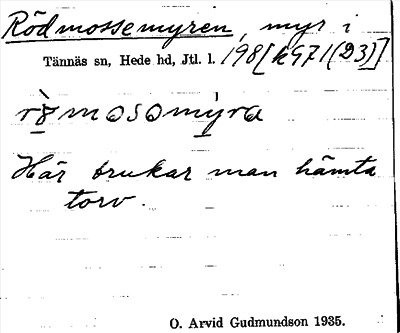 Rödmossemyren, myr i
Tännäs sn, Hede hd, Jtl. l. 198[kG71(D3)]
Här brukar man hämta
torv.
O. Arvid Gudmundson 1935.